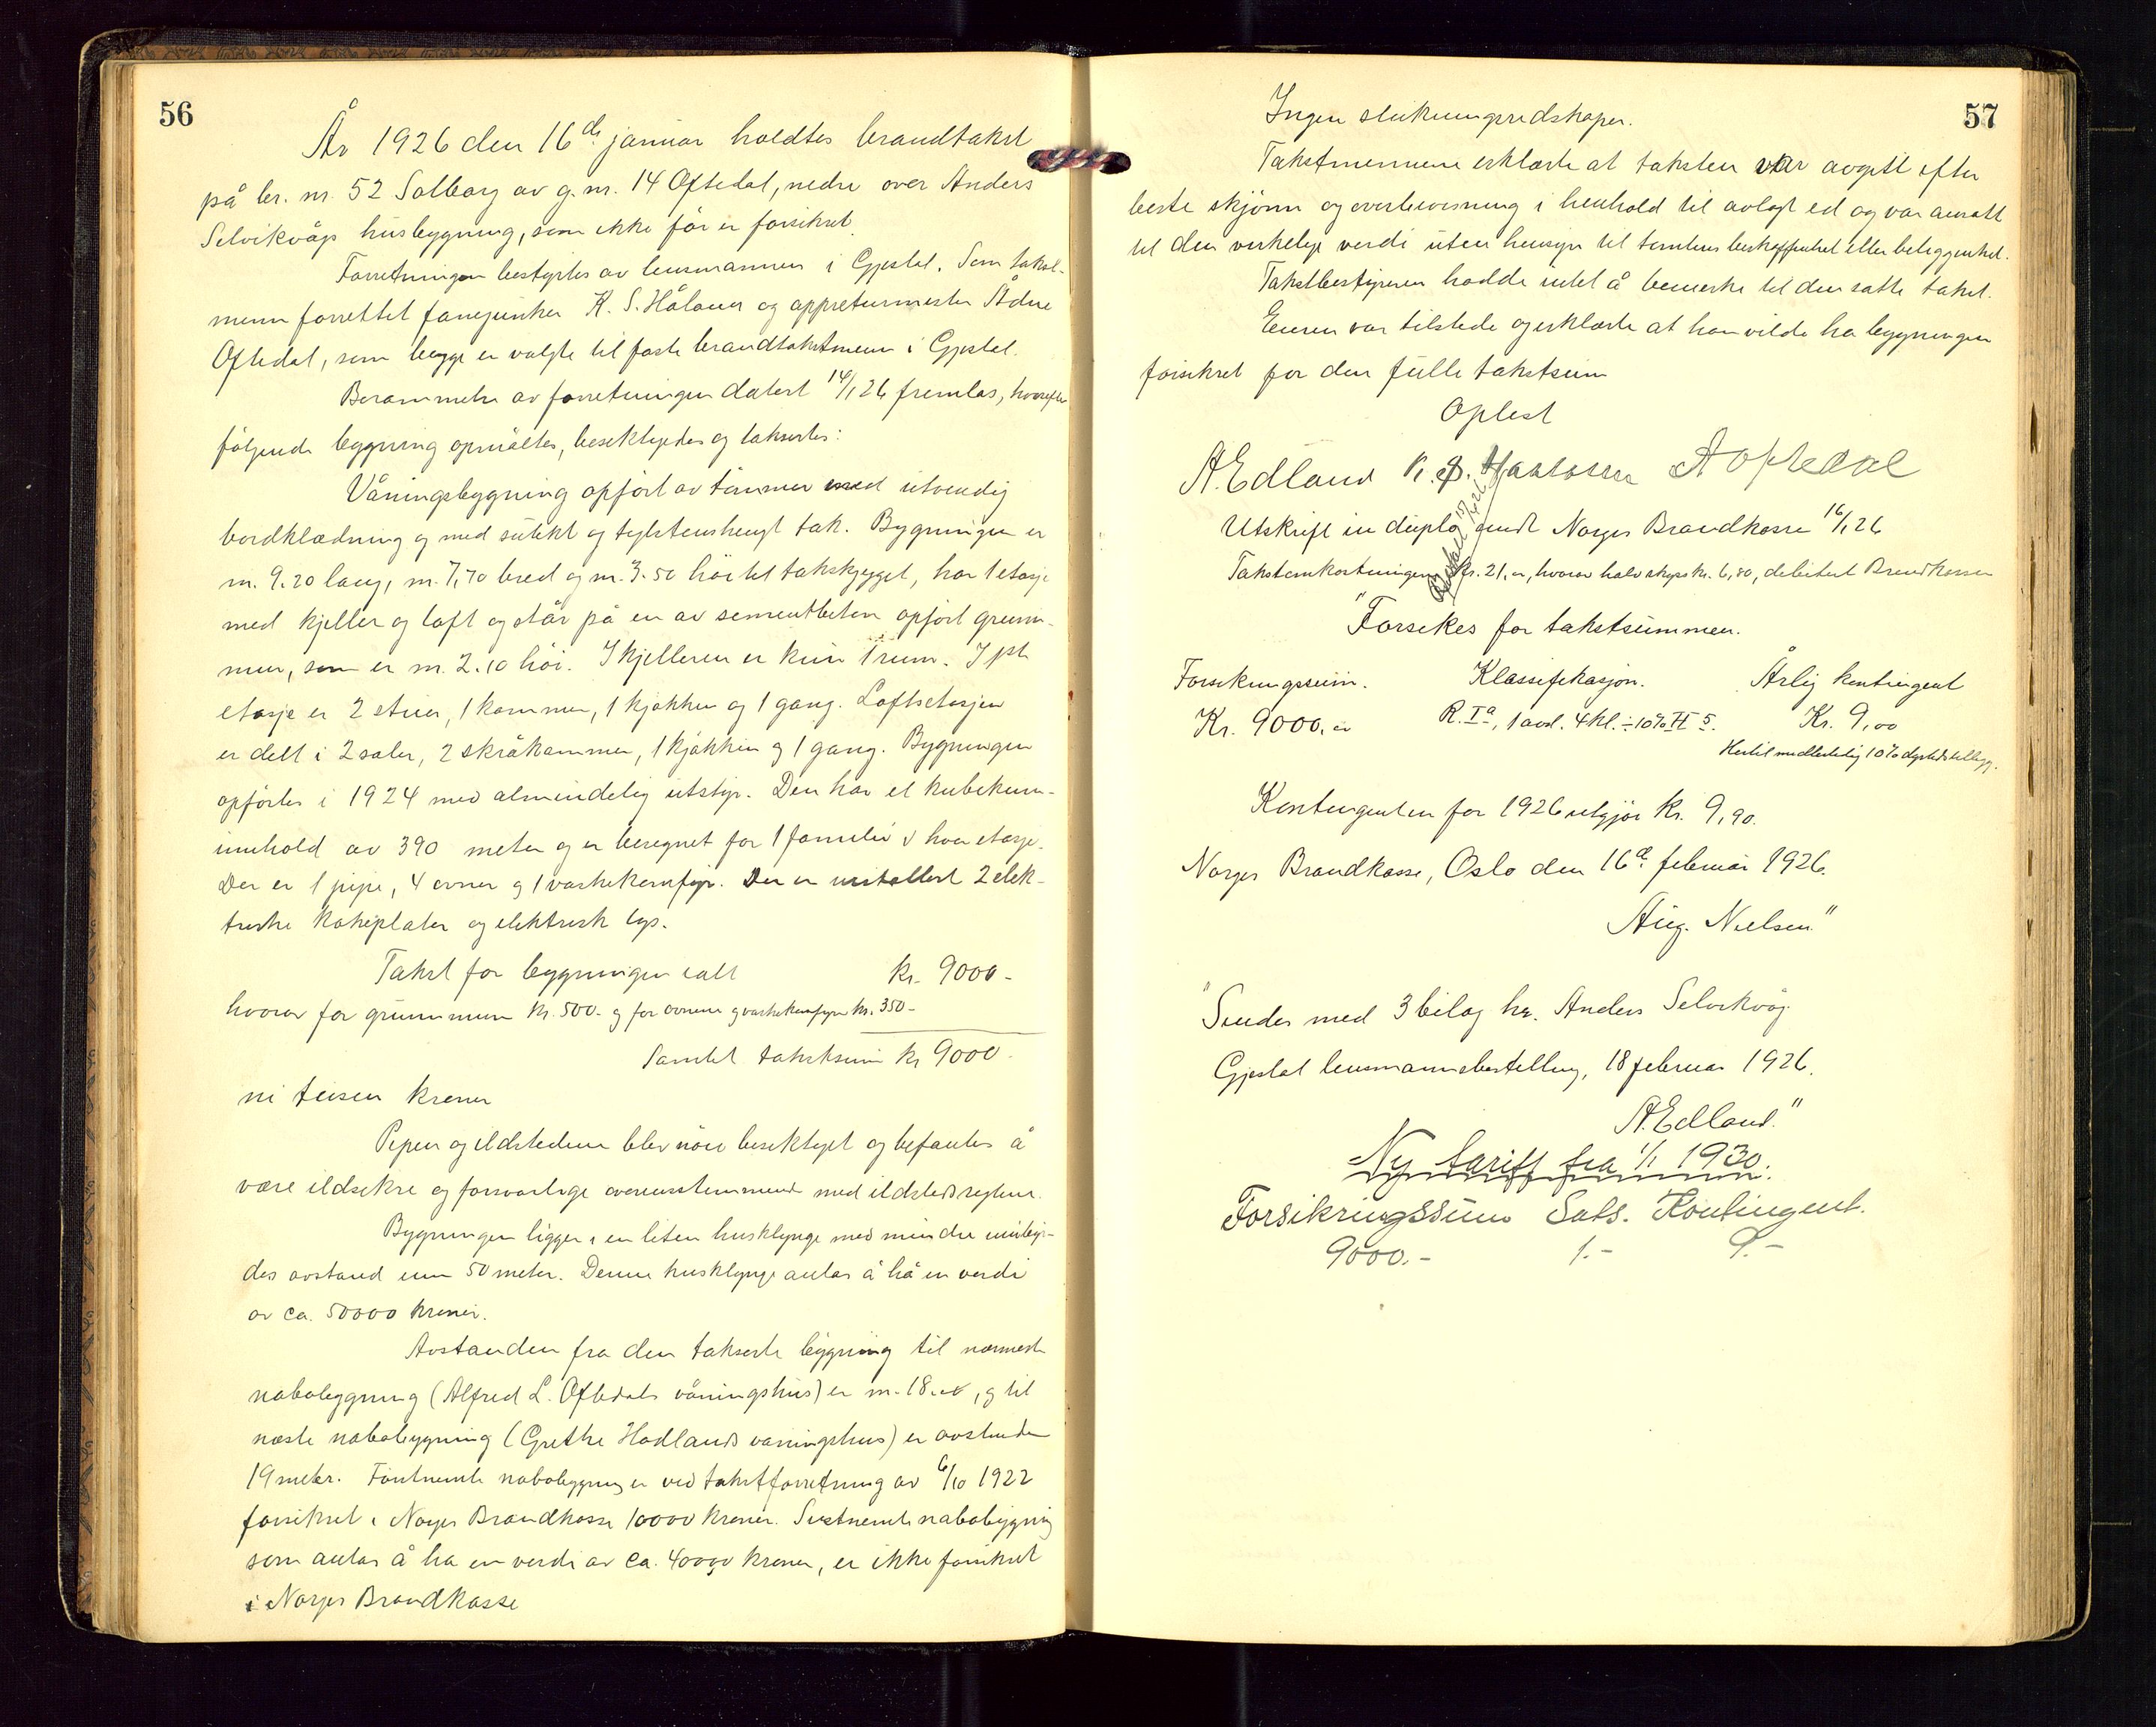 56
År 1926 den 16de januar holdtes brandtakst
på br. nr. 52 Solborg av g. nr. 14 Oftedal, nedre over Anders
Selvikvågs husbygning, som ikke før er forsikret.
Forretningen bestyrtes av lensmannen i Gjestal. Som takst-
menn forrettet fanejunker K. S. Håland og appreturmester Ådne
Oftedal, som begge er valgte til faste brandtakstmenn i Gjestal.
Berammelse av forretningen datert 14/1 26 fremlas, hvorefter
følgende bygning opmåltes, besiktigedes og takseres:
Våningsbygning opført av tømmer med utvendig
bordklædning og med sutekt og teglstenshengt tak. Bygningen er
m. 9.20 lang, m. 7,70 bred og m. 3.50 høi til takskjegget, har 1 etasje
med kjeller og loft og står på en av sementbeton opført grunn-
mur, som er m. 2.10 høi. I kjelleren er kun 1 rum. I 1ste
etasje er 2 stuer, 1 kammer, 1 kjøkken og 1 gang. Loftsetasjen
er delt i 2 saler, 2 skråkammer, 1 kjøkken og 1 gang. Bygningen
opførtes i 1924 med almindelig utstyr. Den har et kubikum-
innhold av 390 meter og er beregnet for 1 familie i hver etasje.
Der er 1 pipe, 4 ovner og 1 vaskekomfyr. Der er installert 2 elek-
triske kokeplater og elektrisk lys.
Takst for bygningen ialt kr. 9000-
hvorav for grunnmuren kr. 500.- og for ovnene og vaskekomfyr kr. 350-
Samlet takstsum kr 9000-
ni tusen kroner
Pipen og ildstedene blev nøie besiktiget og befantes å
være ildsikre og forsvarlige overensstemmende med ildstedsreglene.
Bygningen ligger i en liten husklynge med mindre innbyr-
des avstand enn 50 meter. Denne husklynge antas å ha en verdi
av ca. 50000 kroner.
Avstanden fra den takserte bygning til nærmeste
nabobygning (Alfred L. Oftedals våningshus) er m. 18.00, og til
næste nabobygning (Grethe Hadlands våningshus) er avstanden
19 meter. Førstnemte nabobygning er ved takstforretning av 6/10 1922
forsikret i Norges Brandkasse 10000 kroner. Sistnemte nabobygning
som antas å ha en verdi av ca. 4000,00 kroner, er ikke forsikret
i Norges Brandkasse
57
Ingen slukningsredskaper.
Takstmennene erklærte at taksten var avgitt efter
beste skjønn og overbevisning i henhold til avlagt ed og var ansatt
til den virkelige verdi uten hensyn til tomtens beskaffenhet eller beliggenhet.
Takstbestyreren hadde intet å bemerke til den satte takst.
Eieren var tilstede og erklærte at han vilde ha bygningen
forsikret for den fulle takstsum
Oplest
A. Edland K. S. AOftedal
Utskrift in duplo sendt Norges Brandkasse 16/1 26
Takstomkostningene kr. 21,00, hvorav halv skyss kr. 6,80, debitert Brandkassen
"Forsikres for takstsummen.
Forsikringssum. Klassifikasjon. Årlig kontingent
Kr. 9000,00 R. Ia, 1 avd. 4 kl. ÷ 10% H 5. Kr. 9,00
Hertil midlertidig 10% dyrtidstillegg.
Kontingenten for 1926 utgjør kr. 9,90.
Norges Brandkasse, Oslo den 16de februar 1926.
Aug. Nielsen"
"Sendes med 3 bilag hr. Anders Selvikvåg.
Gjestal lensmannsbestilling, 18 februar 1926.
A. Edland."
Ny tariff fra 1/1 1930.
Forsikringssum Sats. Kontingent.
9000.- 1.- 9.-